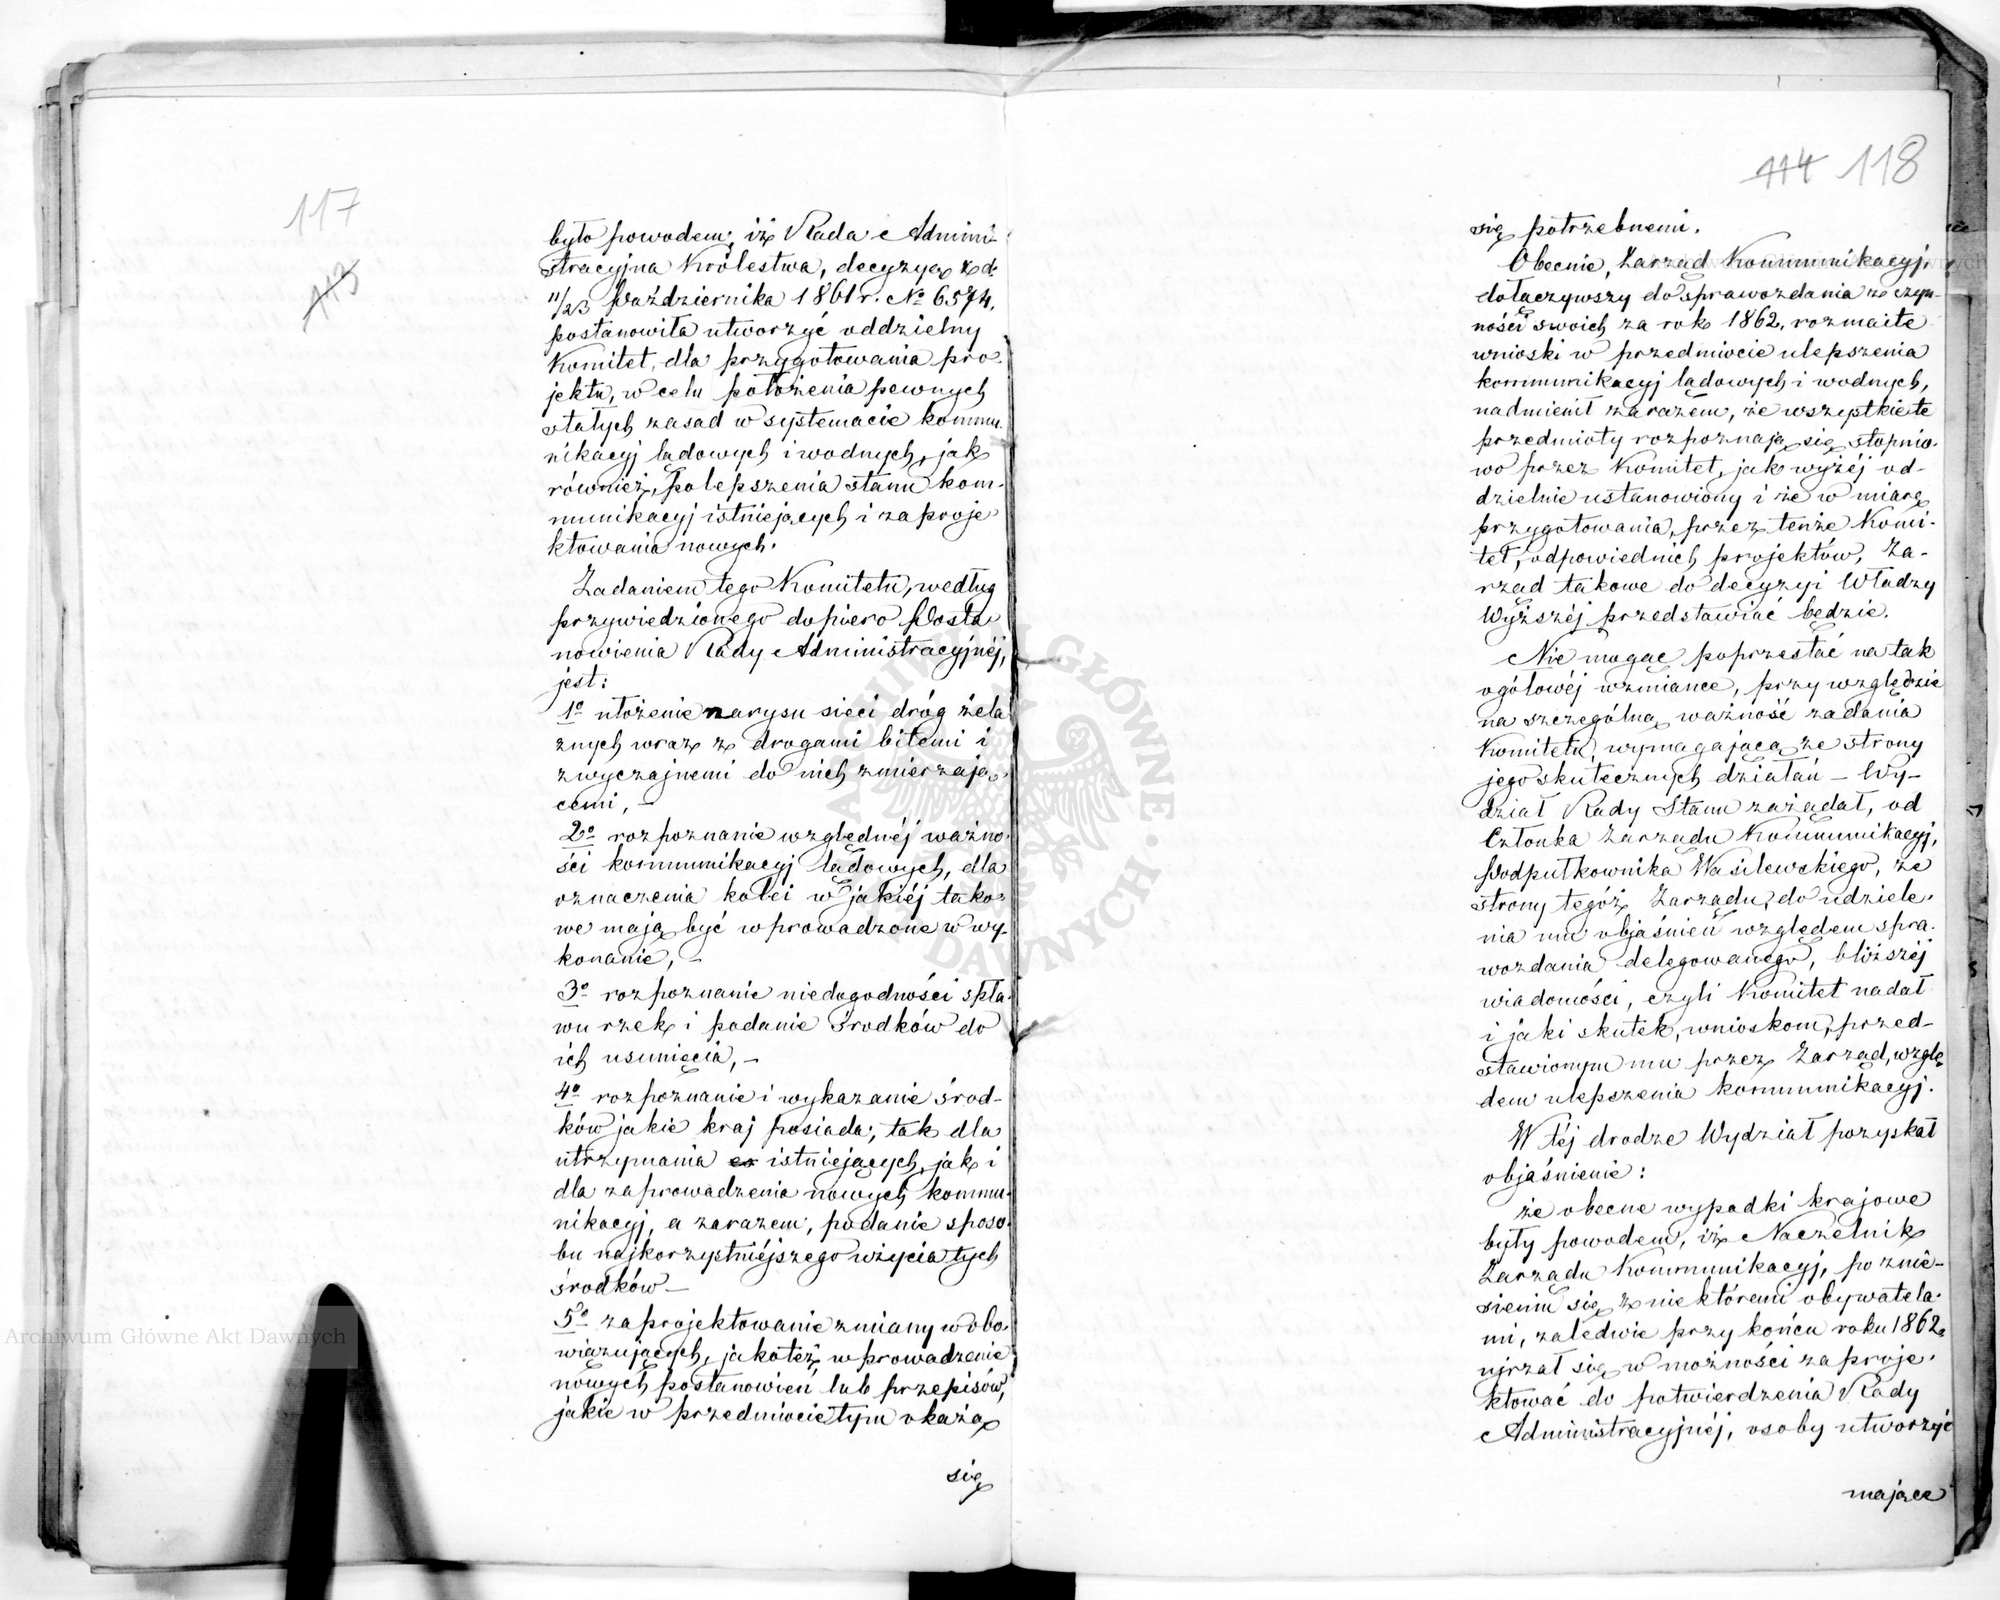 117
113
było powodem, iż Rada Admini-
stracyjna Królestwa, decyzyą z d.
11/23 Października 1861 r. № 6574,
postanowiła utworzyć oddzielny
Komitet, dla przygotowania pro-
jektu, w celu położenia pewnych
stałych zasad w systemacie kommu-
nikacyj lądowych i wodnych, jak
również, polepszenia stanu kom-
munikacyj istniejących i zaproje-
ktowania nowych.
Zadaniem tego Komitetu, według
przywiedzionego dopiero Posta-
nowienia Rady Administracyjnéj,
jest:
1º ułożenie narysu sieci dróg żela-
znych wraz z drogami bitemi i
zwyczajnemi do nich zmierzają-
cemi, –
2º rozpoznanie względnéj ważno-
ści kommunikacyj lądowych, dla
oznaczenia kolei w jakiéj tako-
we mają być wprowadzone w wy-
konanie, –
3º rozpoznanie niedogodności spła-
wu rzek i podanie środków do
ich usunięcia, –
4º rozpoznanie i wykazanie środ-
ków jakie kraj posiada, tak dla
utrzymania istniejących, jak i
dla zaprowadzenia nowych kommu-
nikacyj, a zarazem, podanie sposo-
bu najkorzystniéjszego użycia tych
środków –
5º zaprojektowanie zmiany w obo-
wiązujących, jakoteż, wprowadzenie
nowych postanowień lub przepisów,
jakie w przedmiocie tym okażą
się
114 118
się potrzebnemi.
Obecnie, Zarząd Kommunikacyj,
dołączywszy do sprawozdania z czyn-
ności swoich za rok 1862, rozmaite
wnioski w przedmiocie ulepszenia
kommunikacyj lądowych i wodnych,
nadmienił zarazem, że wszystkie te
przedmioty rozpoznają się stopnio-
wo przez Komitet, jak wyżéj od-
dzielnie ustanowiony i że w miarę
przygotowania, przez tenże Komi-
tet, odpowiednich projektów, Za-
rząd takowe do decyzyi Władzy
Wyższéj przedstawiać będzie.
Nie mogąc poprzestać na tak
ogółowéj wzmiance, przy względzie
na szczególną ważność zadania
Komitetu, wymagającą ze strony
jego skutecznych działań – Wy-
dział Rady Stanu zażądał, od
Członka Zarządu Kommunikacyj,
Podpułkownika Wasilewskiego, ze
strony tegóż Zarządu, do udziele-
nia mu objaśnień względem spra-
wozdania delegowanego, bliższéj
wiadomości, czyli Komitet nadał
i jaki skutek, wnioskom, przed-
stawionym mu przez Zarząd, wzglę-
dem ulepszenia kommunikacyj.
W téj drodze Wydział pozyskał
objaśnienie:
że obecne wypadki krajowe
były powodem, iż Naczelnik
Zarządu Kommunikacyj, po znie-
sieniu się z niektóremi obywatela-
mi, zaledwie przy końcu roku 1862,
ujrzał się w możności zaproje-
ktować do potwierdzenia Rady
Administracyjnéj, osoby utworzyć
mające
Archiwum Główne Akt Dawnych
ARCHIWUM GŁÓWNE AKT DAWNYCH